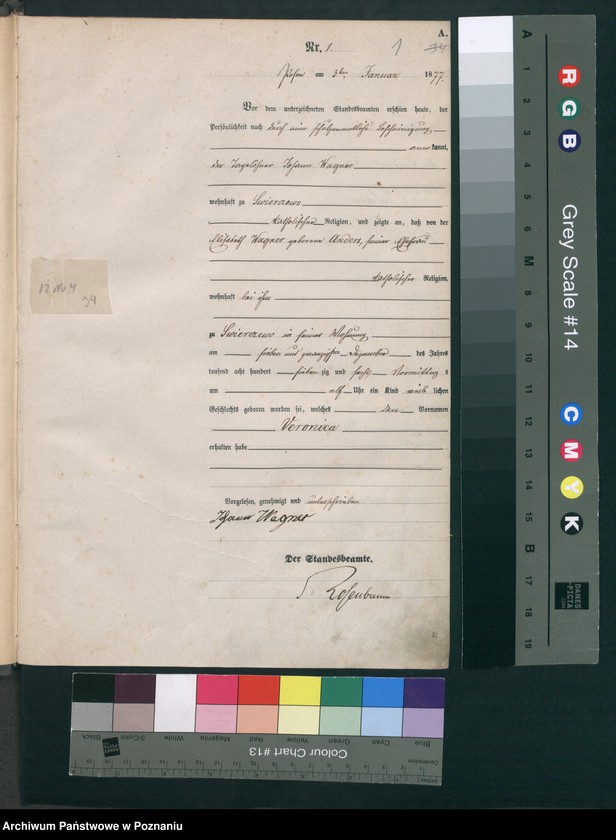 A.
Nr. 1.
1
34
Posen am 3ten Januar 1877.
Vor dem unterzeichneten Standesbeamten erschien heute, der
Persönlichkeit nach durch eine schulzenamtliche Bescheinigung,
anerkannt,
der Tagelöhner Johann Wagner
wohnhaft zu Swierczewo
katholischer Religion, und zeigte an, daß von der
Elisabeth Wagner geborene Anders, seiner Ehefrau
katholischer Religion,
wohnhaft bei ihm
zu Swierczewo in seiner Wohnung
am sieben und zwanzigsten Dezember des Jahres
tausend acht hundert siebenzig und sechs Vormittags
um elf Uhr ein Kind weiblichen
Geschlechts geboren worden sei, welches den Vornamen
Veronika
erhalten habe
Vorgelesen, genehmigt und unterschrieben
Johann Wagner
Der Standesbeamte.
Rosenbaum
12 No 4
34
A 1 2 3 4 5 6 M 8 9 10 11 12 13 14 15 B 17 18 19
R G B
Grey Scale #14
C M Y K
DANES
-PICTA
.COM
Colour Chart #13
Black 3/Color White Magenta Red Yellow Green Cyan Blue
Centimetres
Inches
Archiwum Państwowe w Poznaniu